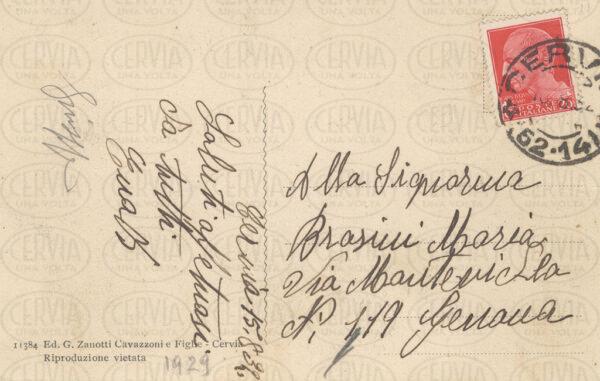 Cervia 15.8.32
Saluti affettuosi
da tutti
Alla Signorina
Brasini Maria
Via
N. 119 Genova
POSTE
ITALIANE
20
CERVIA
(62-14)
11384 Ed. G. Zanotti Cavazzoni e Figlie - Cervia
Riproduzione vietata
1929
CERVIA
UNA VOLTA